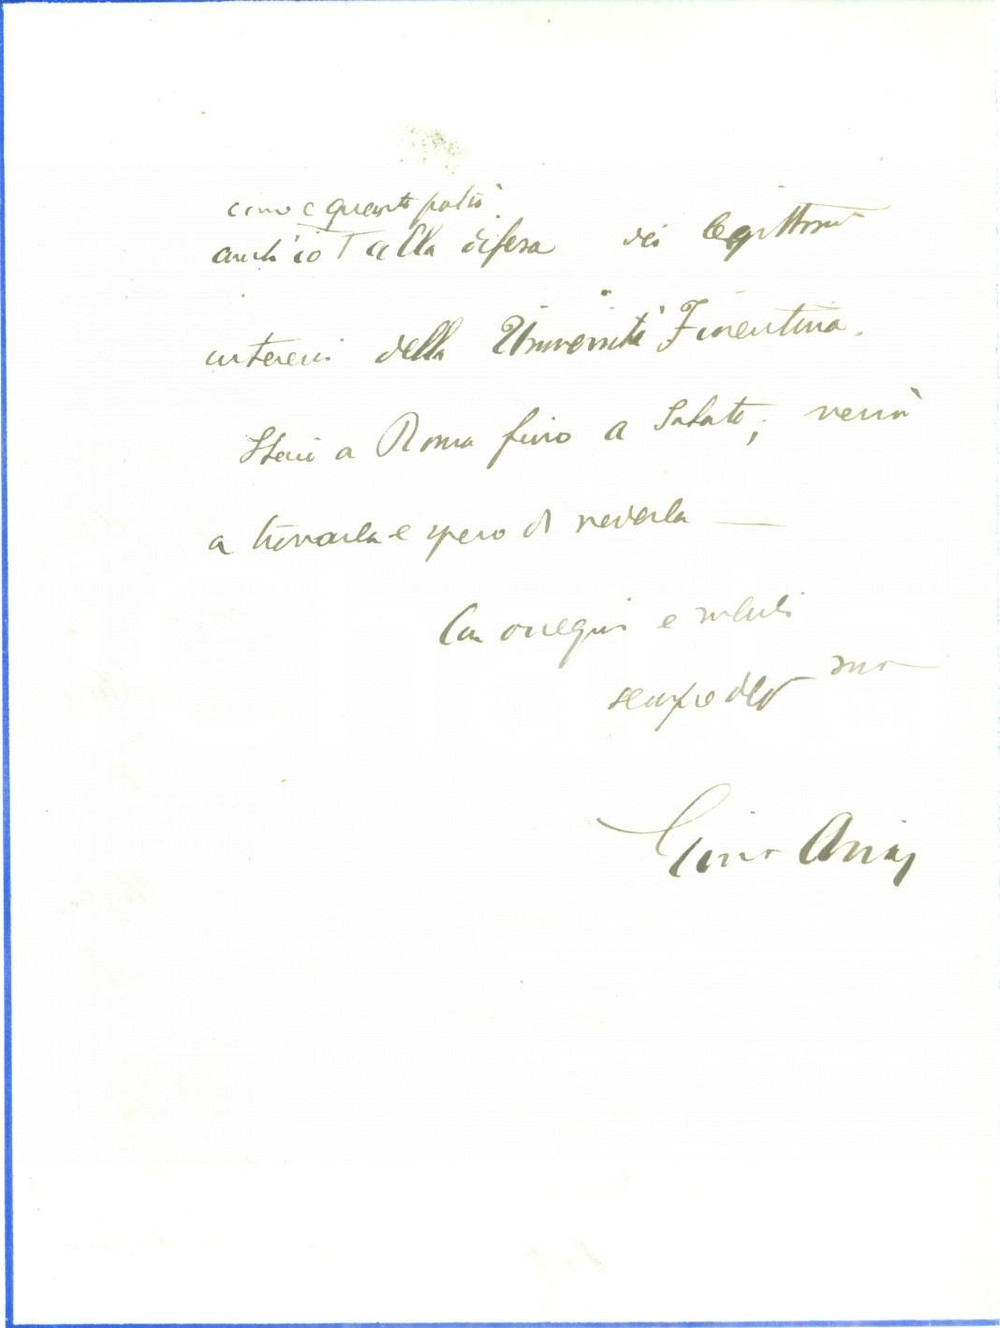 come e quanto potrò
anch'io alla difesa dei legittimi
interessi della Università Fiorentina.
Starò a Roma fino a Sabato; verrò
a trovarla e spero di vederla —
Con ossequi e saluti
sempre suo
Gino Arias